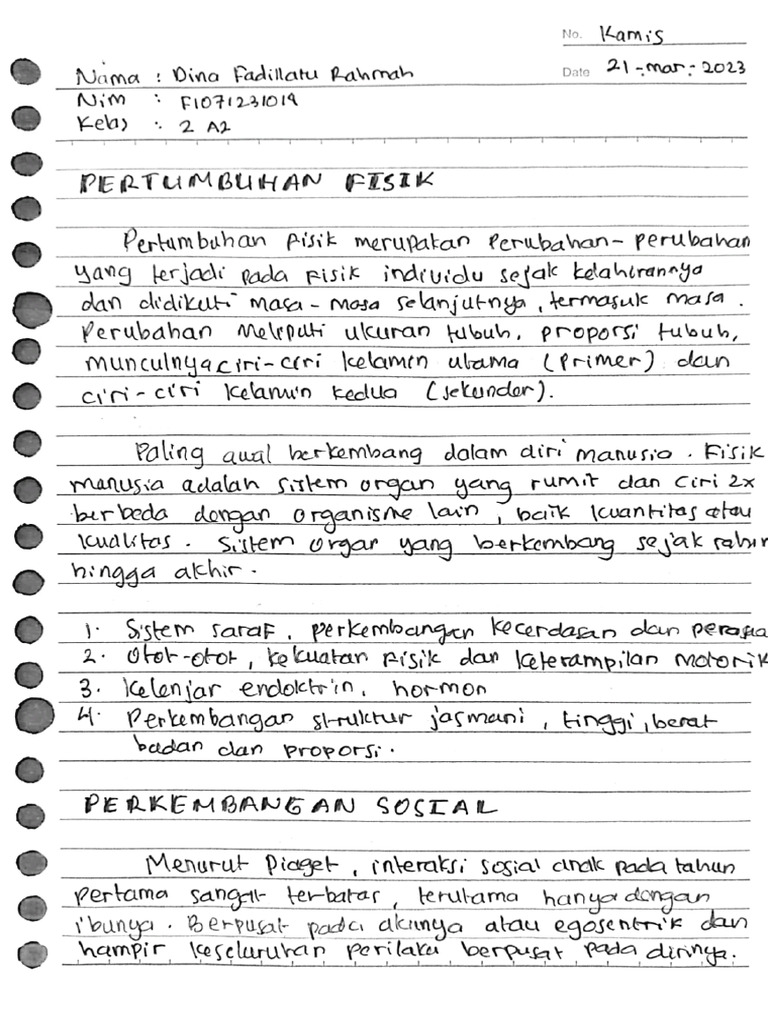 No. Kamis
Date 21-mar-2023
Nama : Dina Fadillatu Rahmah
Nim : F1071231019
Kelas : 2 A2
PERTUMBUHAN FISIK
Pertumbuhan fisik merupakan perubahan-perubahan
yang terjadi pada fisik individu sejak kelahirannya
dan didikuti masa-masa selanjutnya, termasuk masa.
Perubahan meliputi ukuran tubuh, proporsi tubuh,
munculnya ciri-ciri kelamin utama (primer) dan
ciri-ciri kelamin kedua (sekunder).
Paling awal berkembang dalam diri manusia. Fisik
manusia adalah sistem organ yang rumit dan ciri 2x
berbeda dengan organisme lain, baik kuantitas atau
kualitas. Sistem organ yang berkembang sejak
hingga akhir.
1. Sistem saraf, perkembangan kecerdasan dan
2. Otot-otot, kekuatan fisik dan keterampilan motorik
3. Kelenjar endoktrin, hormon
4. Perkembangan struktur jasmani, tinggi, berat
badan dan proporsi.
PERKEMBANGAN SOSIAL
Menurut Piaget, interaksi sosial anak pada tahun
pertama sangat terbatas, terutama hanya dengan
ibunya. Berpusat pada akunya atau egosentrik dan
hampir keseluruhan perilaku berpusat pada dirinya.